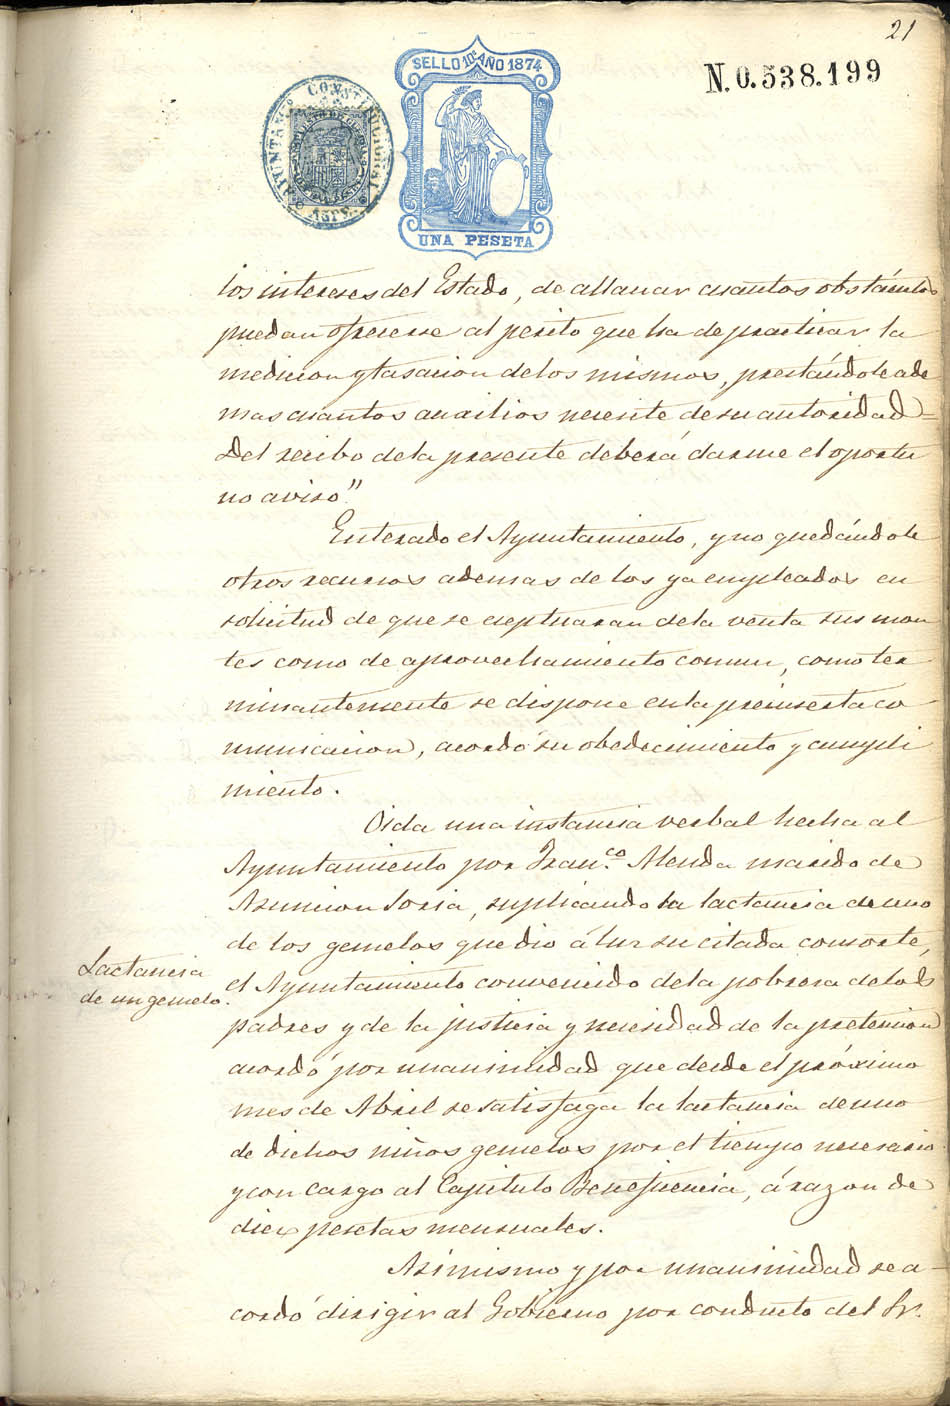 21
N.0.538.199
SELLO 10º AÑO 1874
UNA PESETA
AYUNTAMº CONSTITUCIONAL
los intereses del Estado, de allanar cuantos obstáculos
puedan ofrecerse al perito que ha de practicar la
medicion y tasacion de los mismos, prestándole ade
mas cuantos auxilios necesite de su autoridad=
Del recibo de la presente deberá darme el oportu
no aviso"
Enterado el Ayuntamiento, y no quedándole
otros recursos ademas de los ya empleados en
solicitud de que se eceptuaran de la venta sus mon
tes como de aprovechamiento comun, como ter
minantemente se dispone en la preinserta co
municacion, acordó su obedecimiento y cumpli
miento.
Oida una instancia verbal hecha al
Ayuntamiento por Franco. Alenda marido de
Asuncion Soria, suplicando la lactancia de uno
de los gemelos que dio á luz su citada consorte,
Lactancia
de un gemelo.
el Ayuntamiento convencido de la pobreza de los
padres y de la justicia y necesidad de la pretension
acordó por unanimidad que desde el próximo
mes de Abril se satisfaga la lactancia de uno
de dichos niños gemelos por el tiempo necesario
y con cargo al Capitulo Beneficencia, á razon de
diez pesetas mensuales.
Asimismo y por unanimidad se a-
cordó dirigir al Gobierno por conducto del Sr.